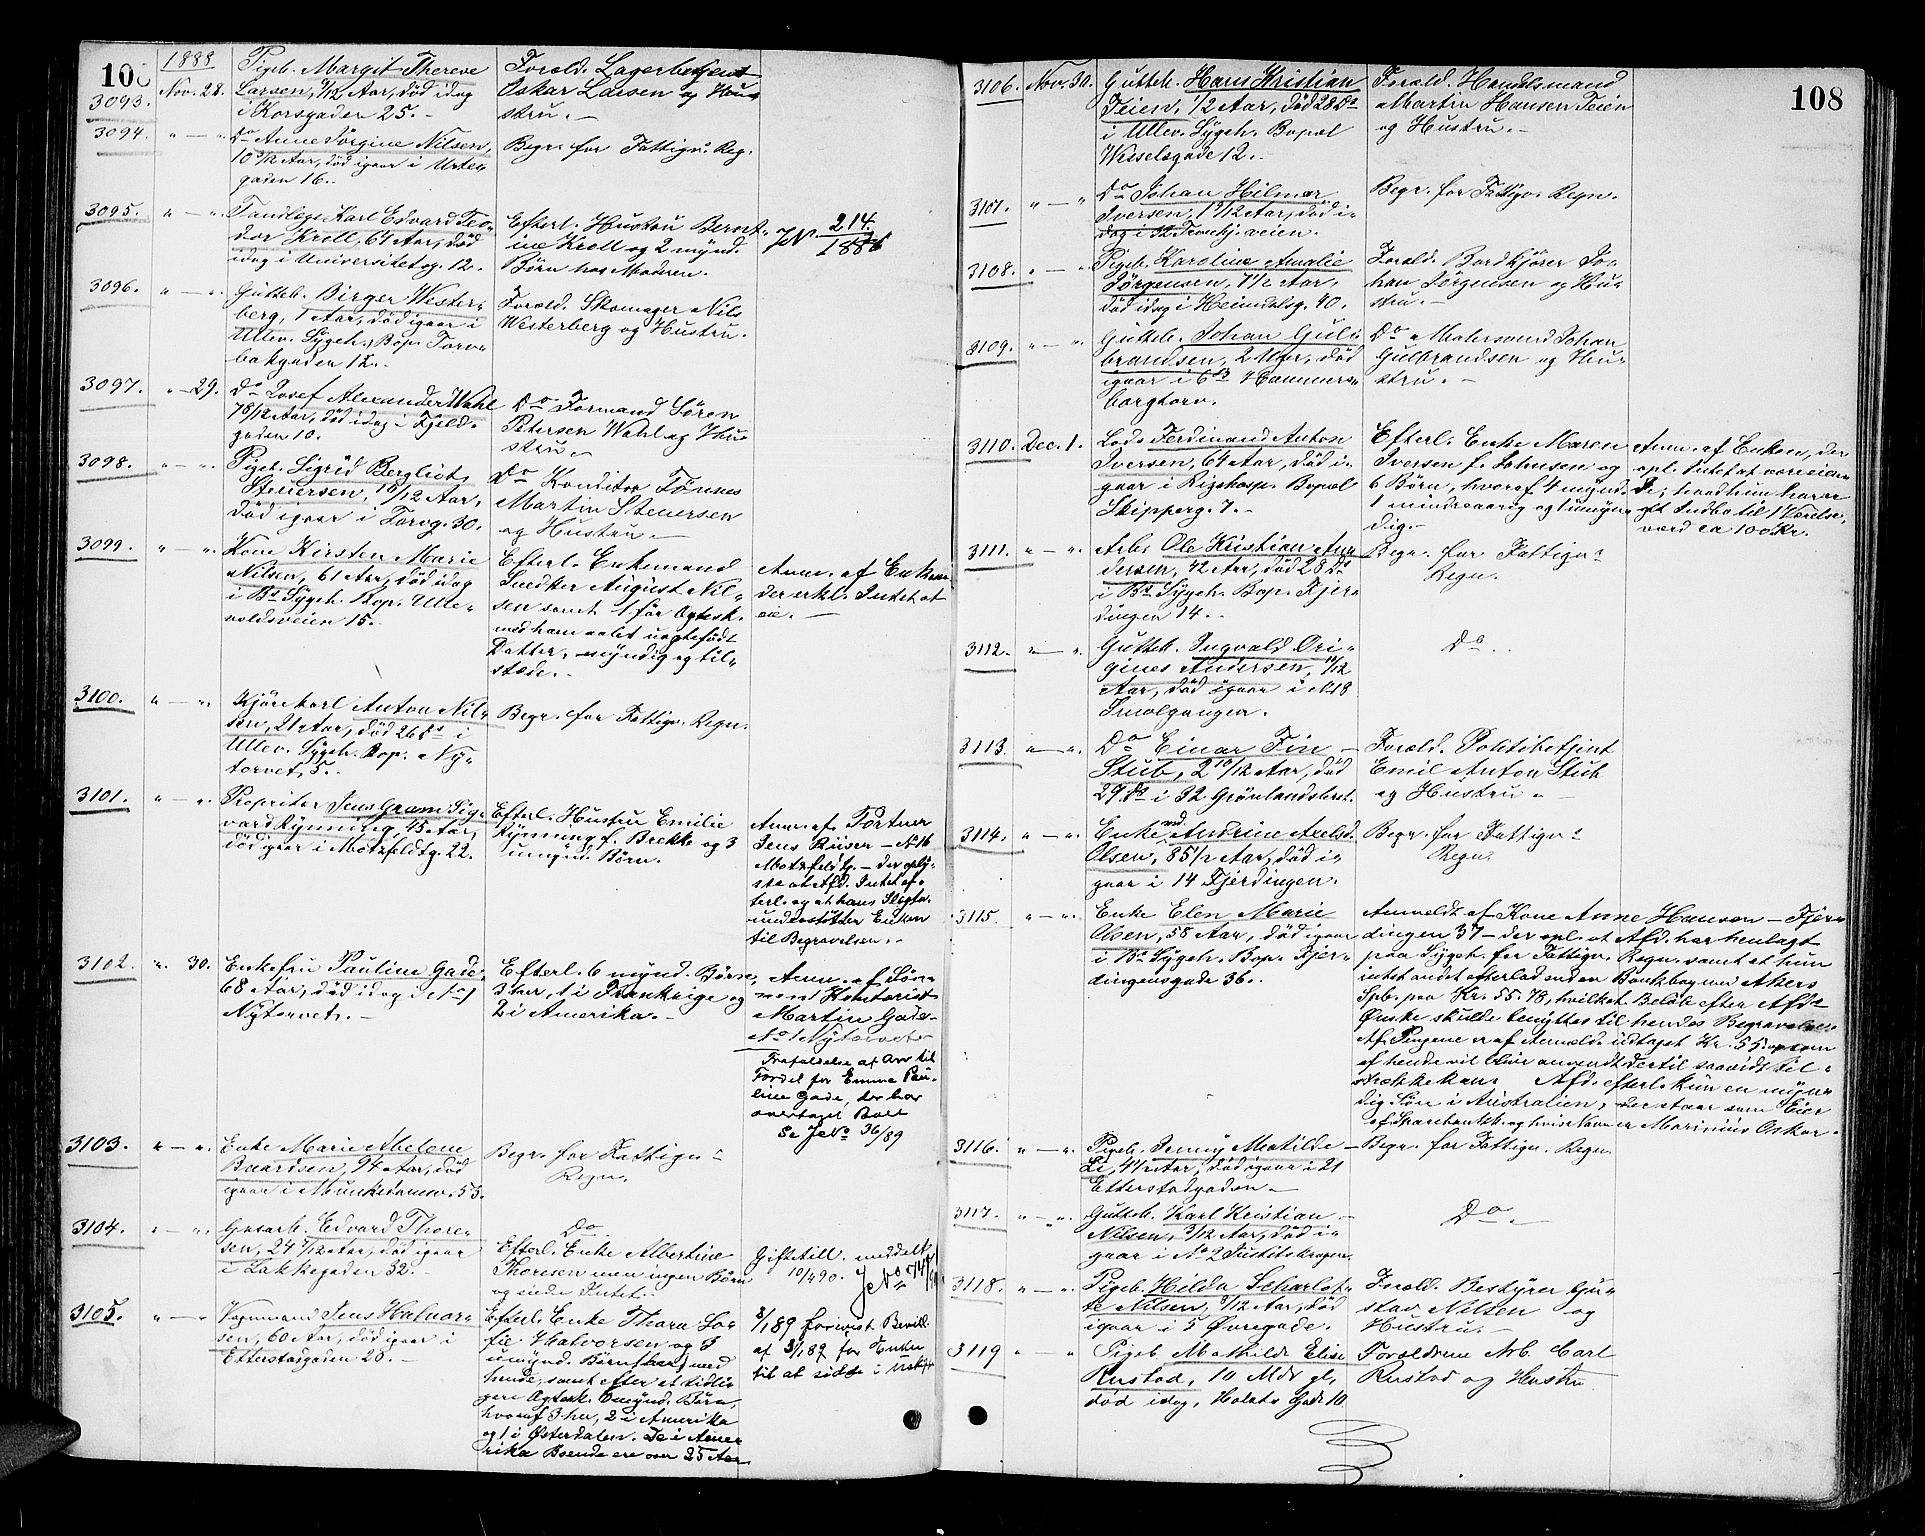 108
1888
3093.
Nov. 28.
Pigeb. Margit Therese
Larsen, 9/12 Aar, död idag
i Korsgaden 25.
Foræld. Lagerbetjent
Oskar Larsen og Hu-
stru.
3094.
" — "
Do Anne Jörgine Nilsen,
10 Aar, död igaar i Urte-
gaden 16.
Begr. for Fattigv. Reg.
3095.
" — "
Tandlæge Karl Edvard Teo-
dor Krell, 64 Aar, död
idag i Universitetsg. 12.
Efterl. Hustru Bernt-
ine Krell og 2 mynd.
Börn hos Moderen.
JN. 214/1888
3096.
" — "
Gutteb. Birger Wester-
berg, 1 Aar, död igaar i
Ullev. Sygeh. Bop. Torv-
bakgaden 12.
Foræld. Skomager Nils
Westerberg og Hustru.
3097.
" — 29.
Do Josef Alexander Wahl
7 8/12 Aar, död idag i Fjeld-
gaden 10.
Do Formand Sören
Petersen Wahl og Hu-
stru.
3098.
" — "
Pigeb. Sigrid Bergliot
Steuersen, 10/12 Aar,
död igaar i Torvg. 30.
Do Konditor Tönnes
Martin Steuersen
og Hustru.
3099.
" — "
Kone Kirsten Marie
Nilsen, 61 Aar, död idag
i Bs Sygeh. Bop. Ulle-
voldsveien 15.
Efterl. Enkemand
Snedker August Nil-
sen samt 1 för Ægtesk.
med ham avlet uægtefödt
Datter, myndig og til-
stede.
Anm. af Enkem.
der erkl. Intet at
eie.
3100.
" — "
Kjörekarl Anton Nil-
sen, 21 Aar, död 26 Ds i
Ullev. Sygeh. Bop. Ny-
torvet 5.
Begr. for Fattigv. Regn.
3101.
" — "
Propriter Jens Gram Sig-
vard Rynning, 45 Aar,
död igaar i Motzfeldtg. 22.
Efterl. Hustru Emilie
Rynning f. Brekke og 3
umynd. Börn.
Anm. af Portner
Jens Riiser — No 16
Motzfeldtg. — der oply-
ste at Afd. Intet ef-
terl. og at hans Slægtn.
understötter Enken
til Begravelsen.
3102.
" 30.
Enkefru Pauline Gade,
68 Aar, död idag i No 1
Nytorvet.
Efterl. 6 mynd. Börn,
3 her, 1 i Frankrige og
2 i Amerika.
Anm. af Søn-
nen Kontorist
Martin Gade
No 1 Nytorvet
Frafaldelse af Arv til
Fordel for Emma Pau-
line Gade, der har
overtaget Boet
Se JNo 36/89
3103.
" — "
Enke Marie Abelone
Baardsen, 94 Aar, död
igaar i Munkedamsv. 53.
Begr. for Fattigv.
Regn.
3104.
" — "
Gasarb. Edvard Thore-
sen, 24 Aar, död igaar
i Lakkegaden 32.
Do
Efterl. Enke Albertine
Thoresen men ingen Börn
og eiede Intet.
Giftetill. meddelt
10/4 90.
3105.
" — "
Vognmand Jens Halvor-
sen, 60 Aar, död igaar i
Etterstadgaden 28.
Efterl. Enke Thora So-
fie Halvorsen og 3
umynd. Börn med
hende, samt efter et tidli-
gere Ægtesk. 6 mynd. Börn,
hvoraf 3 her, 2 i Amerika
og 1 i Østerdalen. De i Ame-
rika Boende ere over 25 Aar.
3/1 89 forevist Bevill.
af 3/1 89 for Enken
til at sidde i Uskifte
108
3106.
Nov. 30.
Gutteb. Hans Kristian
Teien, 1/2 Aar, död 28 Ds
i Ullev. Sygeh. Bopæl
Wesselsgade 12.
Foræld. Handlsmand
Martin Hansen Teien
og Hustru.
3107.
" — "
Do Johan Hilmar
Iversen, 1 9/12 Aar, död i-
dag i 32 Trondhj. veien.
Begr. for Fattigv. Regn.
3108.
" — "
Pigeb. Karoline Amalie
Jörgensen, 7 1/2 Aar,
död idag i Heimdalsg. 40.
Foræld. Bordkjörer Jo-
han Jörgensen og Hu-
stru.
3109.
" — "
Gutteb. Johan Gul-
brandsen, 2 Mdr, död
igaar i 6 B Hammers-
borgtorv.
Do Malersvend Johan
Gulbrandsen og Hu-
stru.
3110.
Dec. 1.
Lods Ferdinand Anton
Iversen, 64 Aar, död i-
gaar i Rigshosp. Bopæl
Skipperg. 7.
Efterl. Enke Maren
Iversen f. Johnsen og
6 Börn, hvoraf 4 mynd.
1 mindreaarig og 1 umyn-
dig.
Anm. af Enken, der
opl. Intet at være eien-
de, hvad hun har er
lidt Indbo til 1 Værelse,
værd ca 100 Kr.
3111.
" — "
Arb. Ole Kristian An-
dersen, 42 Aar, död 28 Ds
i Bs Sygeh. Bop. Fjer-
dingen 14.
Begr. for Fattigv.
Regn.
3112.
" — "
Gutteb. Ingvald Ori-
gines Andersen, 11/12
Aar, död igaar i No 18
Smalgangen.
Do
3113.
" — "
Do Einar Fin
Stub, 2 10/12 Aar, död
29 Ds i 32 Grönlandsleret.
Foræld. Politibetjent
Emil Anton Stub
og Hustru.
3114.
" — "
Enke Andrine Axelsd.
Olsen, 85 1/2 Aar, död i-
gaar i 14 Fjerdingen.
Begr. for Fattigv.
Regn.
3115.
" — "
Enke Elen Marie
Olsen, 58 Aar, död igaar
i Bs Sygeh. Bop. Fjer-
dingensgade 36.
Anmeldt af Kone Anne Hansen — Fjer-
dingen 37 — der opl. at Afd. har henlagt
paa Sygeh. for Fattigv. Regn. samt at hun
intet andet efterlod enden Bankbog mrk Akers
Spb. paa Kr. 55.78, hvilket Beløb efter Afds
Ønske skulde benyttes til hendes Begravelse.
Af Pengene er af Anmeld. udtaget Kr. 55. som
af hende vil blive anvendt dertil saavidt til-
strække kan. Afd. efterl. kun en myn-
dig Søn i Australien, der staar som Eier
af Sparebankbk. og hvis Navn er Marinius Oskar.
3116.
" — "
Pigeb. Jenny Mathilde
Li, 4 1/2 Aar, död igaar i 21
Etterstadgaden
Begr. for Fattigv. Regn.
3117.
" — "
Gutteb. Karl Kristian
Nilsen, 3/12 Aar, död i-
gaar i No 2
Do
3118.
" — "
Pigeb. Hilda Scharlot-
te Nilsen, 8/12 Aar, död
igaar i 5 Øvregade.
Foræld. Bestyrer Gu-
stav Nilsen og
Hustru.
3119
" — "
Pigeb. Mathilde Elise
Rustad, 10 Mdr gl,
død idag, Holsts Gade 10
Forældrene Arb. Carl
Rustad og Hustru